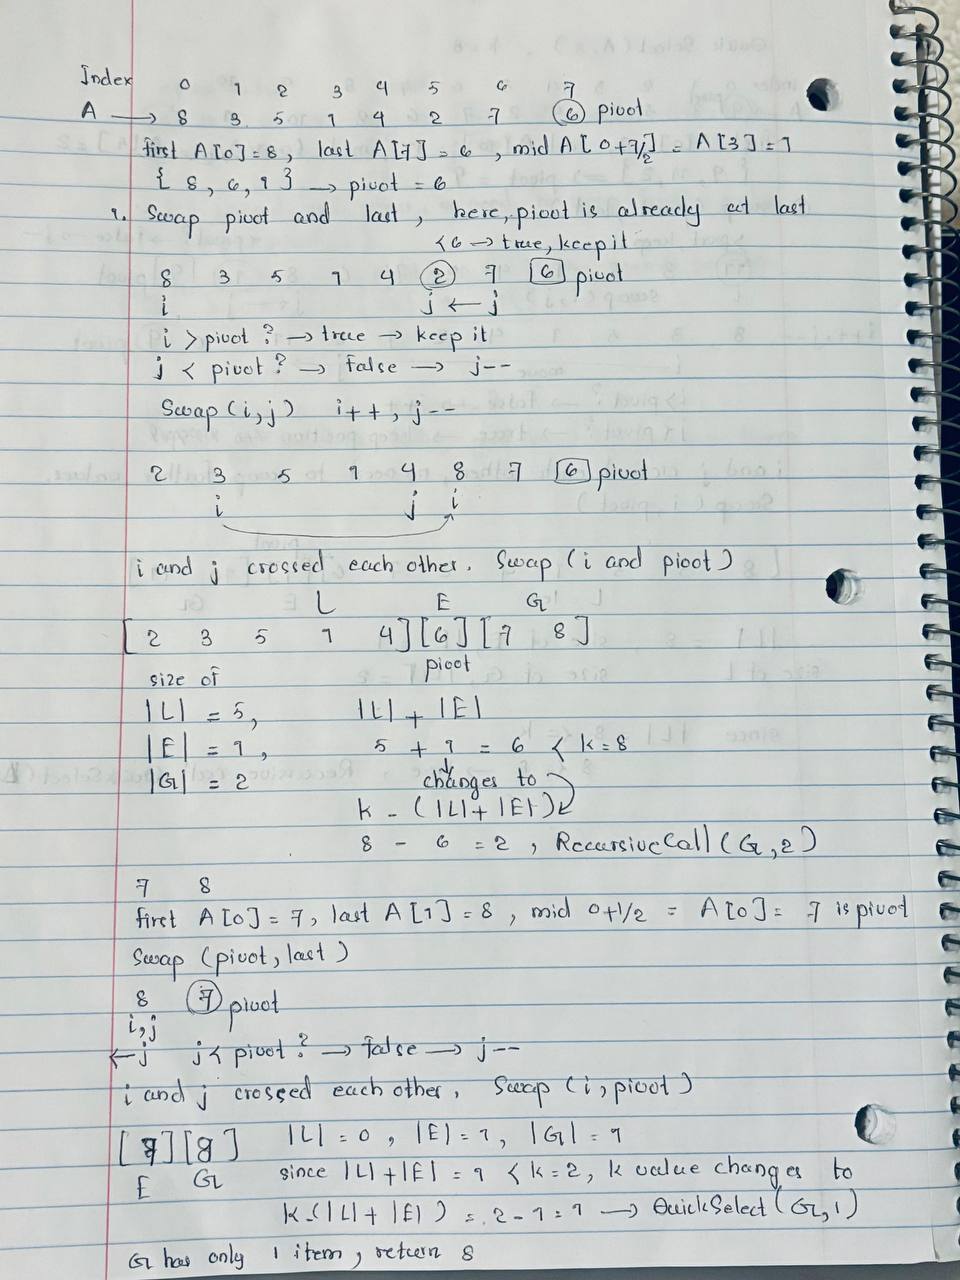 Index 0 1 2 3 4 5 6 7
A → 8 3 5 1 4 2 7 6 pivot
first A[0]=8, last A[7]=6, mid A[0+7/2] = A[3]=1
{ 8, 6, 1 } → pivot = 6
1. Swap pivot and last, here, pivot is already at last
<6 → true, keep it
8 3 5 1 4 2 7 6 pivot
i j ← j
i > pivot ? → true → keep it
j < pivot ? → false → j--
Swap(i,j) i++, j--
2 3 5 1 4 8 7 6 pivot
i j i
i and j crossed each other. Swap (i and pivot)
L E G
[ 2 3 5 1 4][6][7 8]
pivot
size of
|L| = 5, |L| + |E|
|E| = 1, 5 + 1 = 6 < k=8
|G| = 2 changes to
k - (|L|+|E|)
8 - 6 = 2, RecursiveCall(G,2)
7 8
first A[0]=7, last A[1]=8, mid 0+1/2 = A[0]= 7 is pivot
Swap (pivot, last)
8 7 pivot
i,j
←j j< pivot? → false → j--
i and j crossed each other, Swap (i, pivot)
[7][8] |L|=0, |E|=1, |G|=1
E G since |L|+|E| = 1 < k=2, k value changes to
k-(|L|+|E|) = 2-1=1 → QuickSelect(G,1)
G has only 1 item, return 8